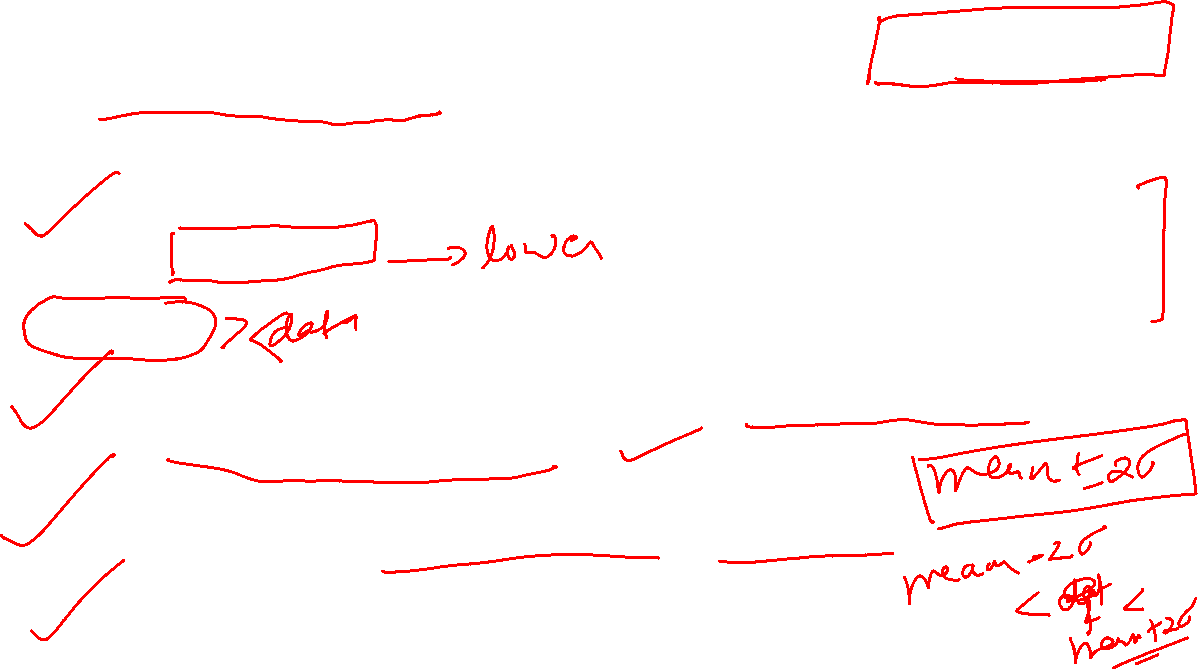 → lower
> < data
mean ± 2σ
mean - 2σ
< data <
mean + 2σ